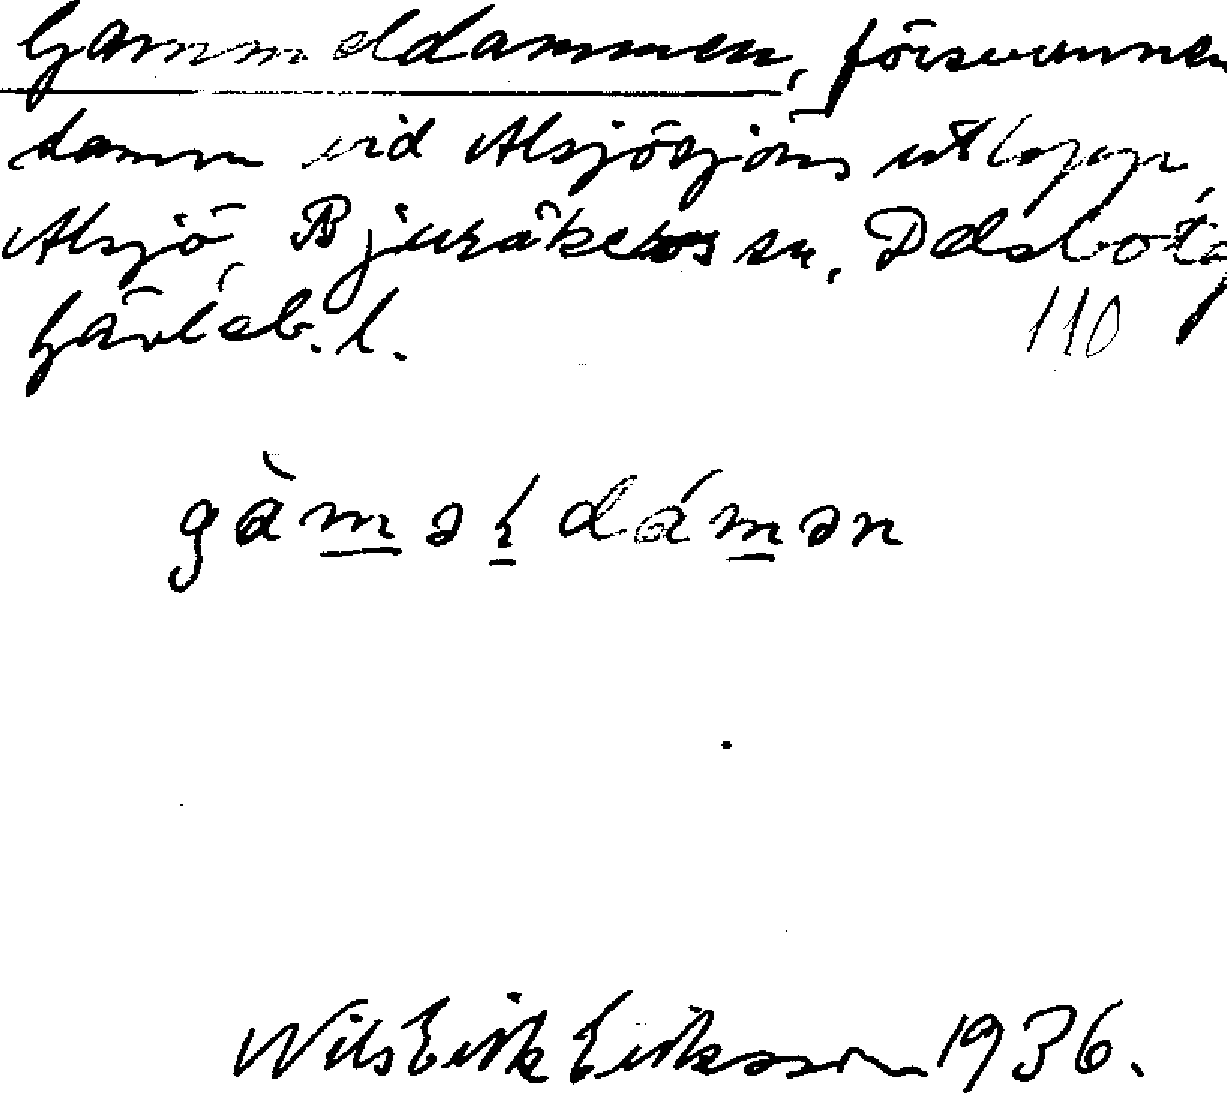 Gammeldammen, försvunnen
damm vid Alsjösjöns utlopp,
Alsjö, Bjuråkers sn,
Gävleb. l. 110
gàməldámən
Nils Erik Eriksson 1936.